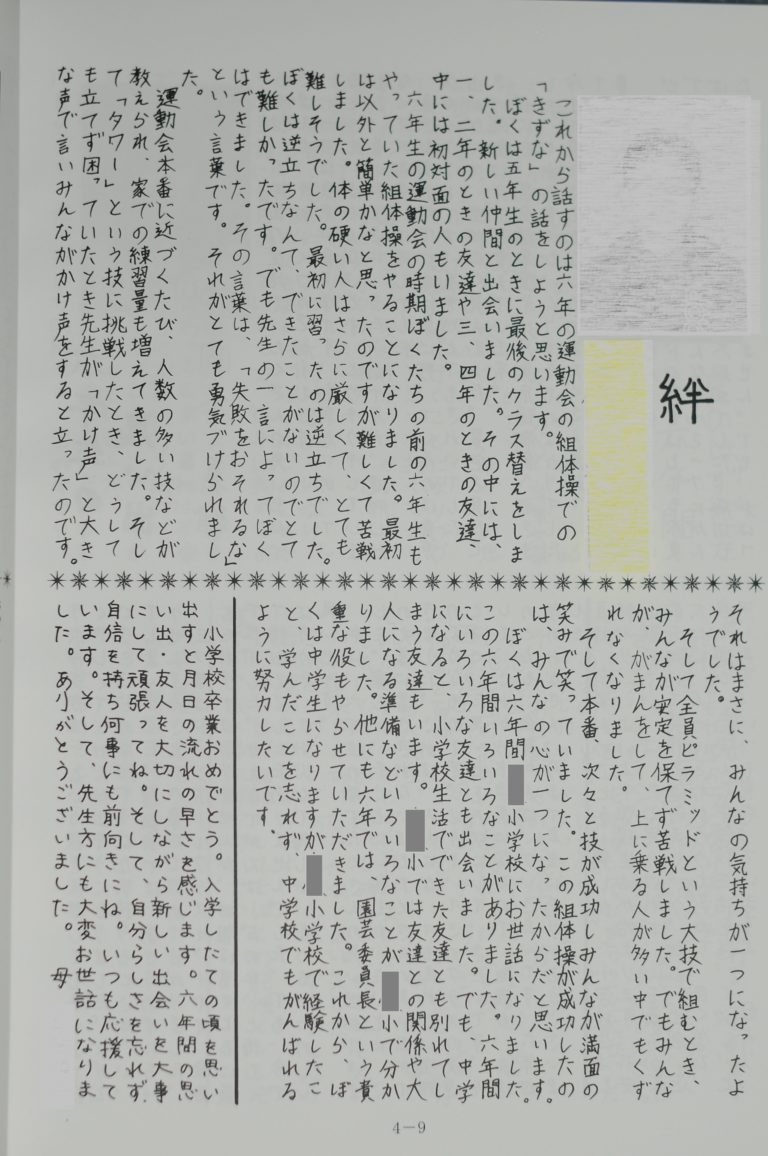 絆
これから話すのは六年の運動会の組体操での
「きずな」の話をしようと思います。
ぼくは五年生のときに最後のクラス替えをしま
した。新しい仲間と出会いました。その中には、
一、二年のときの友達や三、四年のときの友達、
中には初対面の人もいました。
六年生の運動会の時期ぼくたちの前の六年生も
やっていた組体操をやることになりました。最初
は以外と簡単かなと思ったのですが難しくて苦戦
しました。体の硬い人はさらに厳しくて、とても
難しそうでした。最初に習ったのは逆立ちでした。
ぼくは逆立ちなんて、できたことがないのでとて
も難しかったです。でも先生の一言によってぼく
はできました。その言葉は、「失敗をおそれるな」
という言葉です。それがとても勇気づけられまし
た。
運動会本番に近づくたび、人数の多い技などが
教えられ、家での練習量も増えてきました。そし
て「タワー」という技に挑戦したとき、どうして
も立てず困っていたとき先生が「かけ声」と大き
な声で言いみんながかけ声をすると立ったのです。
それはまさに、みんなの気持ちが一つになったよ
うでした。
そして全員ピラミッドという大技で組むとき、
みんなが安定を保てず苦戦しました。でもみんな
が、がまんをして、上に乗る人が多い中でもくず
れなくなりました。
そして本番、次々と技が成功しみんなが満面の
笑みで笑っていました。この組体操が成功したの
は、みんなの心が一つになったからだと思います。
ぼくは六年間小学校にお世話になりました。
この六年間いろいろなことがありました。六年間
にいろいろな友達とも出会いました。でも、中学
になると、小学校生活でできた友達とも別れてし
まう友達もいます。小では友達との関係や大
人になる準備などいろいろなことが小で分か
りました。他にも六年では、園芸委員長という貴
重な役もやらせていただきました。これから、ぼ
くは中学生になりますが、小学校で経験したこ
と、学んだことを忘れず、中学校でもがんばれる
ように努力したいです。
小学校卒業おめでとう。入学したての頃を思い
出すと月日の流れの早さを感じます。六年間の思
い出・友人を大切にしながら新しい出会いを大事
にして頑張ってね。そして、自分らしさを忘れず、
自信を持ち何事にも前向きにね。いつも応援して
います。そして、先生方にも大変お世話になりま
した。ありがとうございました。　母
4-9